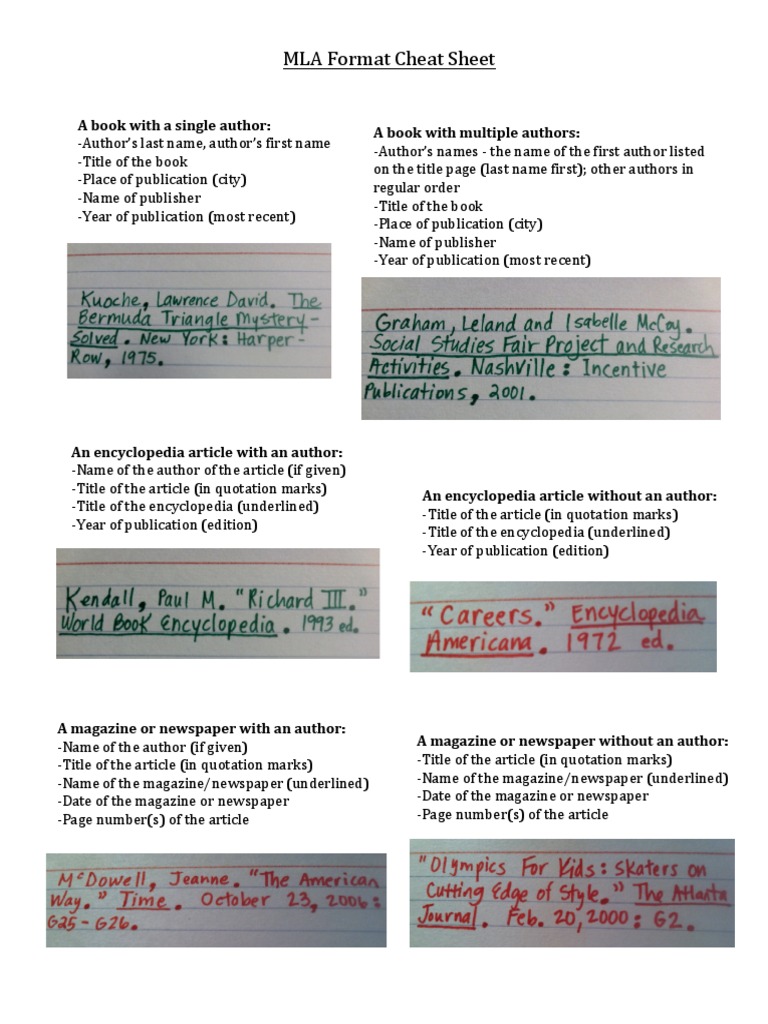 MLA Format Cheat Sheet
A book with a single author:
-Author's last name, author's first name
-Title of the book
-Place of publication (city)
-Name of publisher
-Year of publication (most recent)
Kuoche, Lawrence David. The
Bermuda Triangle Mystery-
Solved. New York: Harper-
Row, 1975.
A book with multiple authors:
-Author's names - the name of the first author listed
on the title page (last name first); other authors in
regular order
-Title of the book
-Place of publication (city)
-Name of publisher
-Year of publication (most recent)
Graham, Leland and Isabelle McCoy.
Social Studies Fair Project and Research
Activities. Nashville: Incentive
Publications, 2001.
An encyclopedia article with an author:
-Name of the author of the article (if given)
-Title of the article (in quotation marks)
-Title of the encyclopedia (underlined)
-Year of publication (edition)
Kendall, Paul M. "Richard III."
World Book Encyclopedia. 1993 ed.
An encyclopedia article without an author:
-Title of the article (in quotation marks)
-Title of the encyclopedia (underlined)
-Year of publication (edition)
"Careers." Encyclopedia
Americana. 1972 ed.
A magazine or newspaper with an author:
-Name of the author (if given)
-Title of the article (in quotation marks)
-Name of the magazine/newspaper (underlined)
-Date of the magazine or newspaper
-Page number(s) of the article
McDowell, Jeanne. "The American
Way." Time. October 23, 2006:
G25-G26.
A magazine or newspaper without an author:
-Title of the article (in quotation marks)
-Name of the magazine/newspaper (underlined)
-Date of the magazine or newspaper
-Page number(s) of the article
"Olympics For Kids: Skaters on
Cutting Edge of Style." The Atlanta
Journal. Feb. 20, 2000: G2.